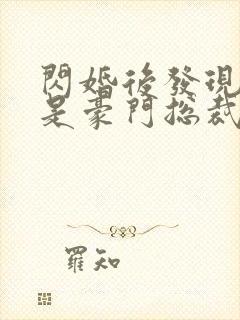 閃婚後發現
是豪門總裁
羅知